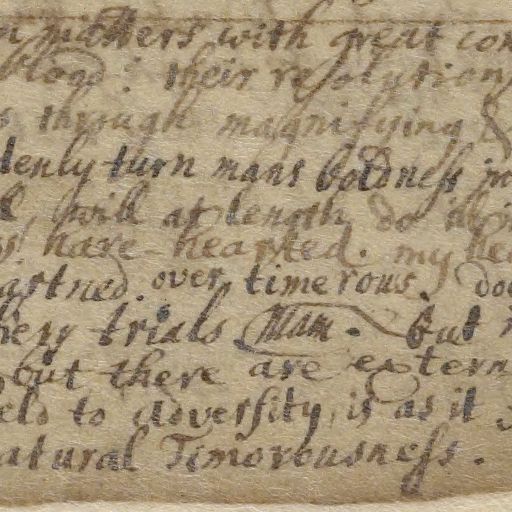 matters with great con
blood: their resolution
through magnifying
denly turn mans boldness in
will at length do
have hearted. my hea
artned over timerous. do
hery trials Mam. but
but there are extern
eld to adversity, is as it
atural Timorousness.